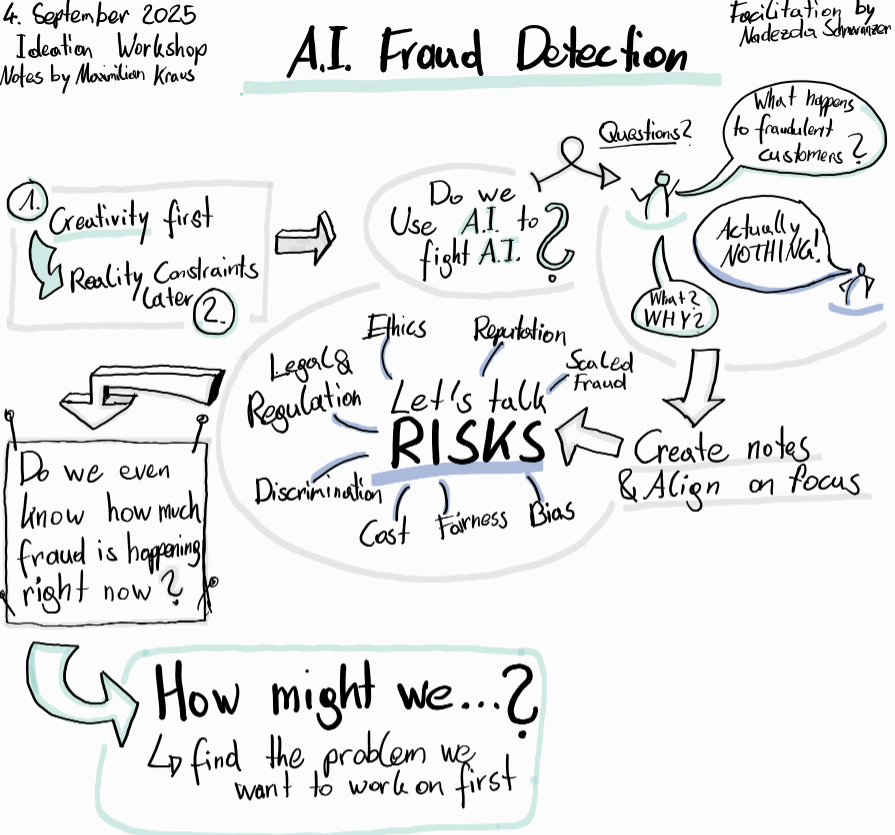 4. September 2025
Ideation Workshop
Notes by Maximilian Kraus
A.I. Fraud Detection
Facilitation by
Nadezda
1. Creativity first
Reality Constraints
Later 2.
Do we
Use A.I. to
fight A.I. ?
Questions?
What happens
to fraudulent
customers?
Actually
NOTHING!
What?
WHY?
Create notes
& Align on focus
Let's talk
RISKS
Ethics
Reputation
Scaled
Fraud
Legal &
Regulation
Discrimination
Cost
Fairness
Bias
Do we even
know how much
fraud is happening
right now?
How might we...?
find the problem we
want to work on first